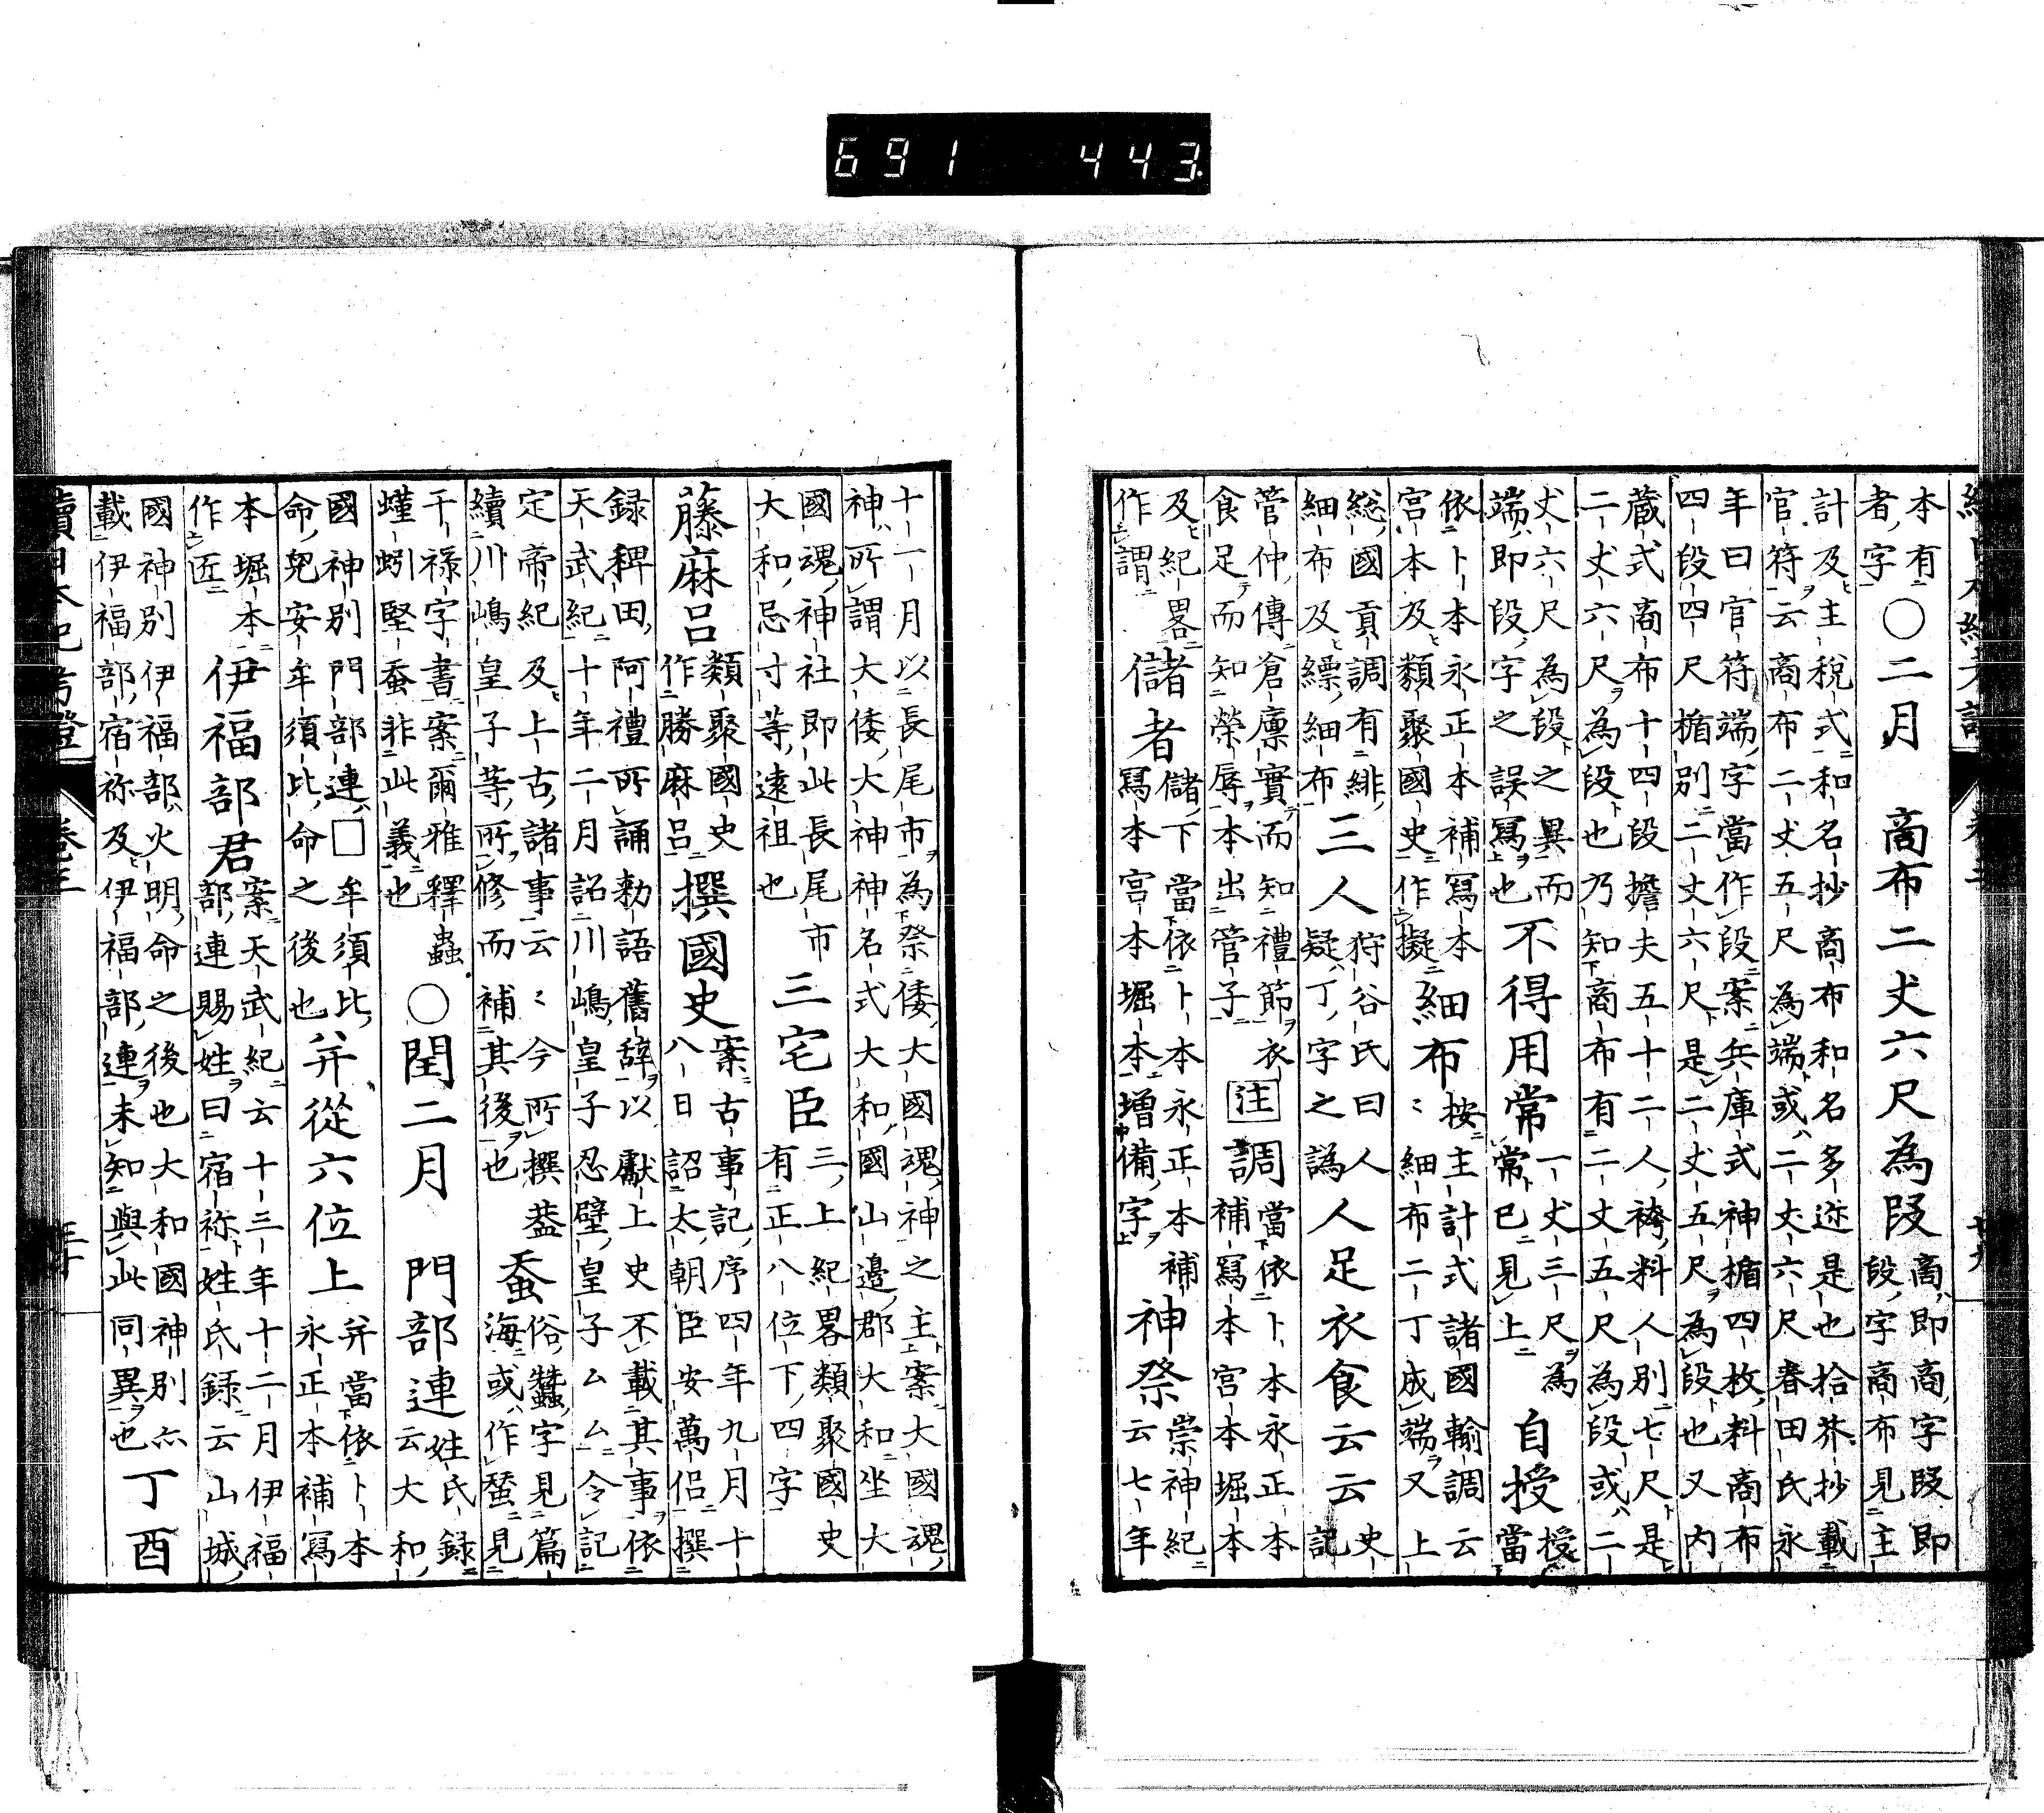 續日本紀考證 卷三 廿九
本有者字○二月 商布二丈六尺為段商即商字段即段字商布見主
計及主税式和名抄商布和名多迩是也拾芥抄載
官符云商布二丈五尺為端或二丈六尺眷田氏永
年曰官符端字當作段案兵庫式神楯四枚料商布
四段四尺楯別二丈六尺是二丈五尺為段也又内
蔵式商布十四段擔夫五十二人袴料人別七尺是
二丈六尺為段也乃知商布有二丈五尺為段或二
丈六尺為段之異而端即段字之誤寫也不得用常一丈三尺為常已見上自授授當
依卜本永正本補寫本宮本及類聚國史作擬細布按主計式諸國輸調云〻細布二丁成端又上
総國貢調有緋細布及縹細布三人狩谷氏曰人疑丁字之譌人足衣食云云史記
管仲傳倉廩實而知禮節衣食足而知榮辱本出管子注調當依卜本永正本補寫本宮本堀本
及紀畧作謂儲者儲下當依卜本永正本補寫本宮本堀本増備字神祭崇神紀云七年
十一月以長尾市為祭倭大國魂神之主案大國魂
神所謂大倭大神神名式大和國山邊郡大和坐大
國魂神社即此長尾市大和忌寸等遠祖也三宅臣三上紀畧類聚國史有正八位下四字
藤麻呂類聚國史作勝麻呂撰國史案古事記序四年九月十八日詔太朝臣安萬侶撰
録稗田阿禮所誦勅語舊辞以獻上史不載其事依
天武紀十年二月詔川嶋皇子忍壁皇子厶厶令記
定帝紀及上古諸事云〻今所撰葢續川嶋皇子等所修而補其後也蚕俗蠶字見篇海或作蝅見
干禄字書案爾雅釋蟲螼蚓堅蚕非此義也○閏二月 門部連姓氏録云大和
國神別門部連□牟須比命兒安牟須比命之後也并從六位上并當依卜本永正本補寫
本堀本作匠伊福部君案天武紀云十三年十二月伊福部連賜姓曰宿祢姓氏録云山城
國神別伊福部火明命之後也大和國神別六載伊福部宿祢及伊福部連未知與此同異也丁酉
續日本紀考證 卷三 三十
691 443